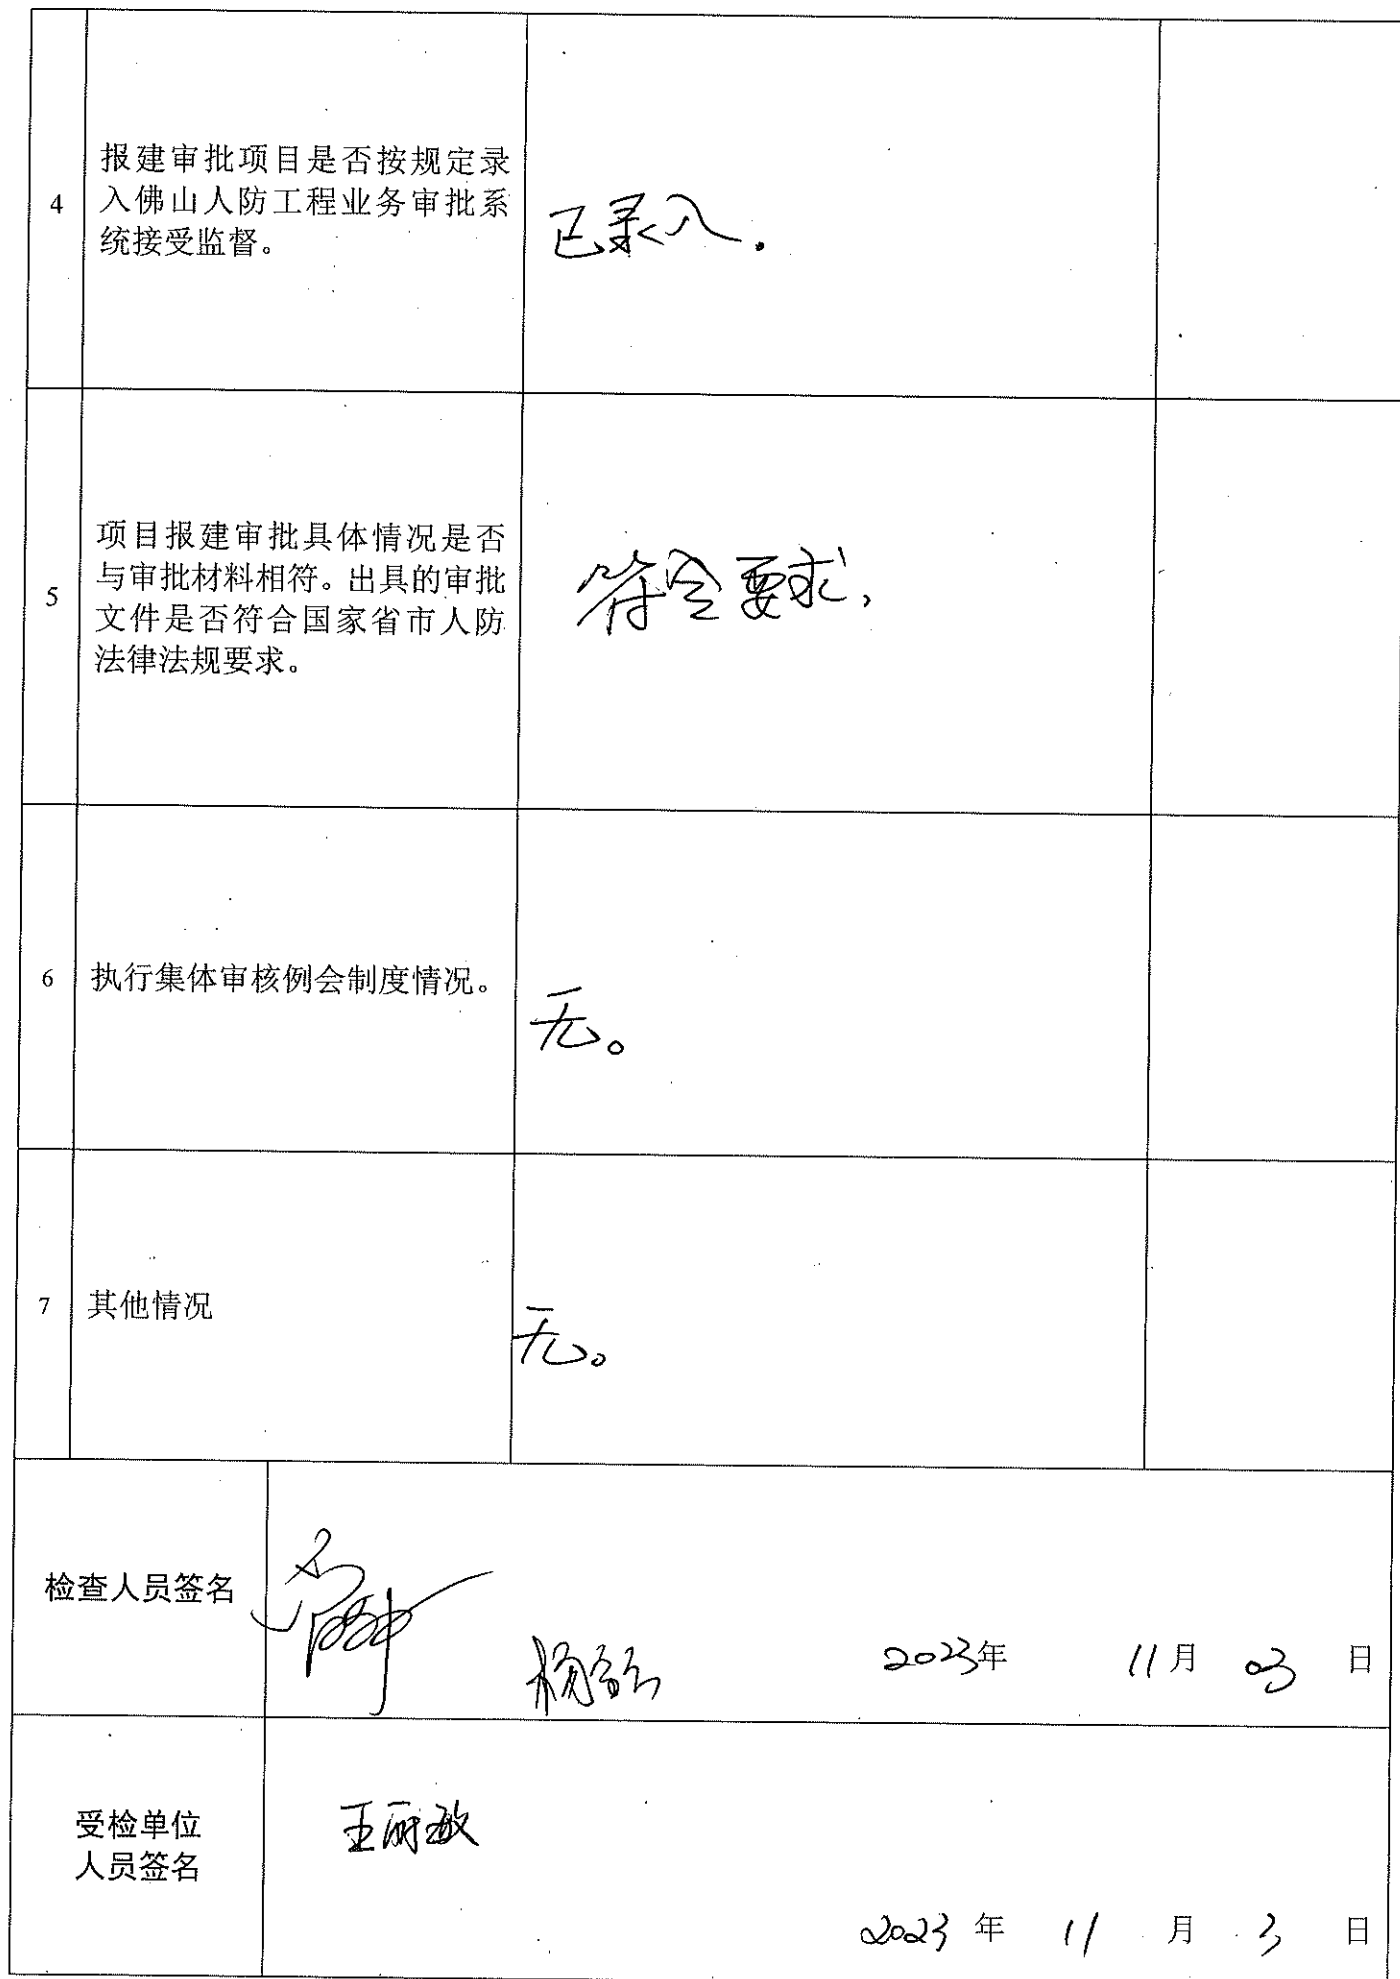 4
报建审批项目是否按规定录
入佛山人防工程业务审批系
统接受监督。
已录入.
5
项目报建审批具体情况是否
与审批材料相符。出具的审批
文件是否符合国家省市人防
法律法规要求。
符合要求,
6
执行集体审核例会制度情况。
无。
7
其他情况
无。
检查人员签名
2023年 11月 03 日
受检单位
人员签名
王丽敏
2023 年 11 月 3 日